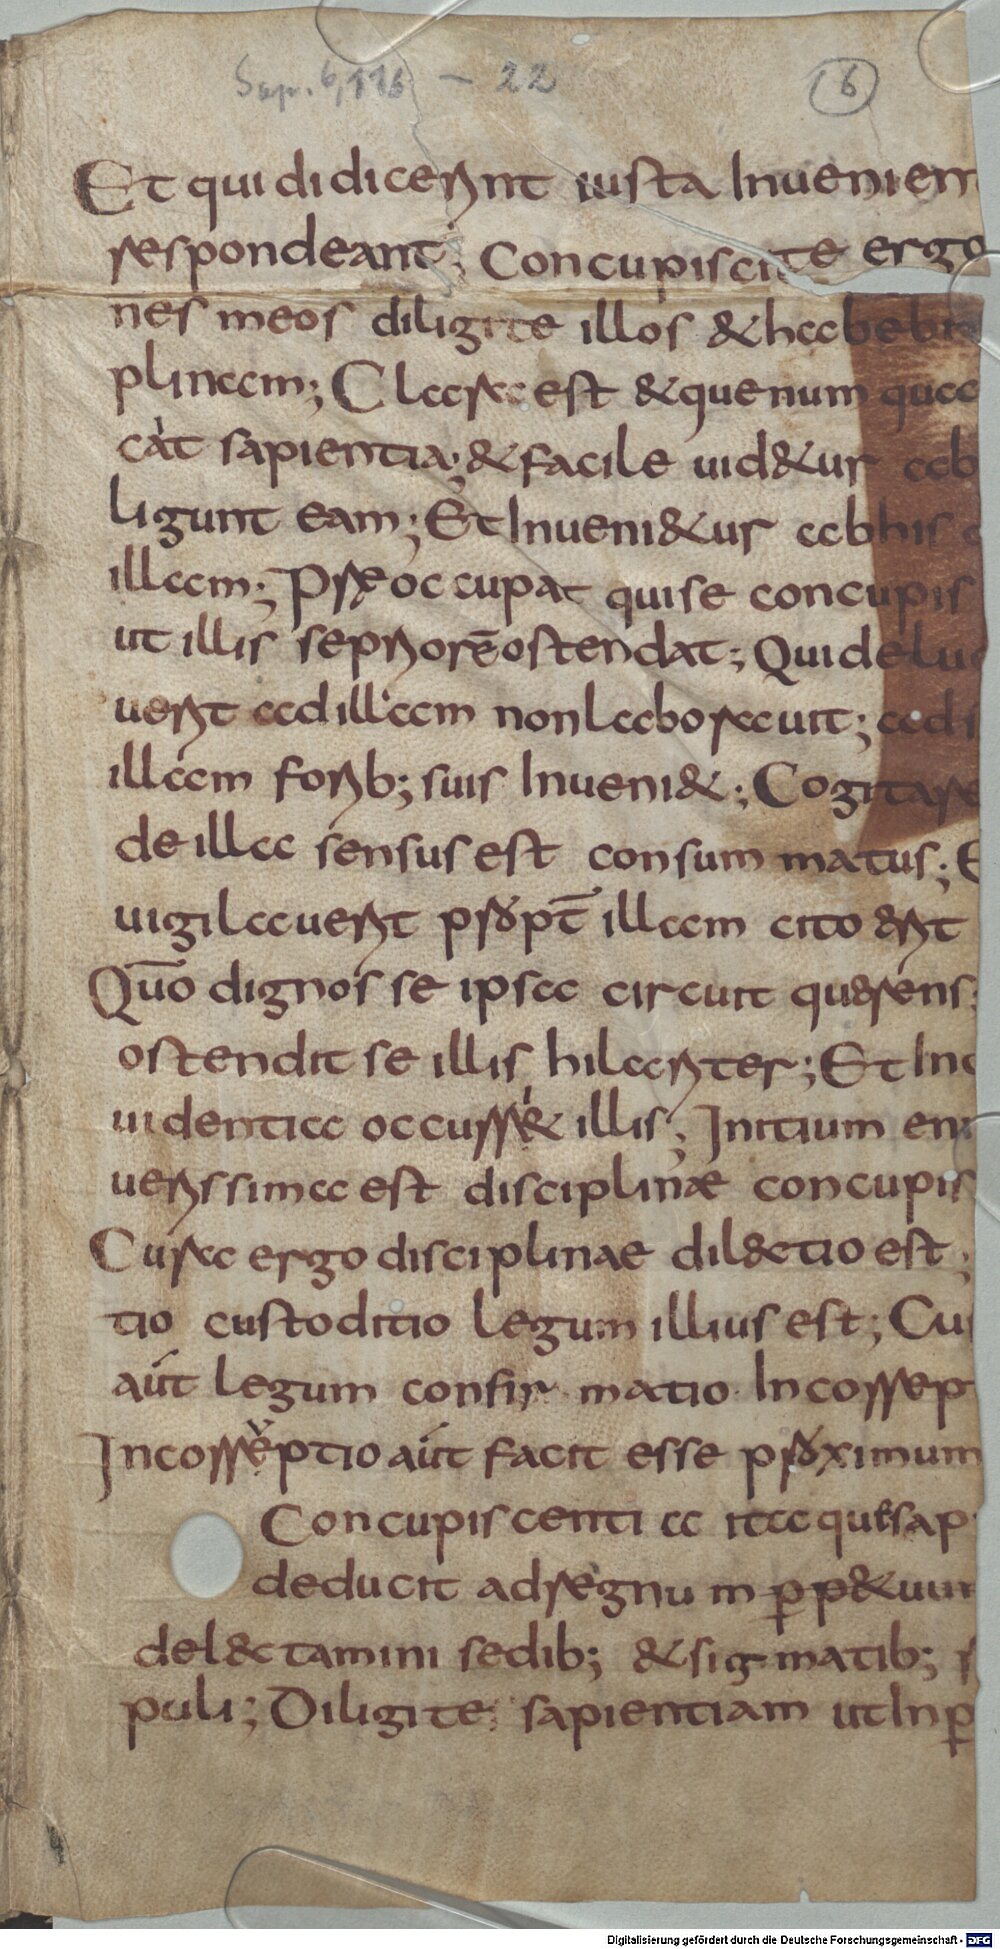 Sap. 6,11b – 22
6
Et qui didicerint iusta Inuenien
respondeant; Concupiscite ergo
nes meos diligite illos & habebi
plinam; Clara est & quenum qua
cat sapientia; & facile uid&ur ab
ligunt eam; Et Inueni&ur ab his
illam; Pre occupat qui se concupis
ut illis se priorē ostendat; Qui de lu
uerit ad illam non laborauit; adsi
illam forib; suis Inueni&; Cogitare
de illa sensus est consummatus; E
uigilauerit propt̄ illam cito erit
Quō dignos se ipsa circuit querens
ostendit se illis hilariter; Et In
uidentia occurr& illis; Initium eni
uerissima est disciplinae concupis
Cura ergo disciplinae dilectio est;
tio custoditio legum illius est; Cu
aut legum confirmatio Incorrep
Incorreptio aut facit esse proximum
Concupiscentia itaque sap
deducit ad regnum pp&uu
delectamini sedib; & sigmatib;
puli; Diligite sapientiam ut Inp
Digitalisierung gefördert durch die Deutsche Forschungsgemeinschaft - DFG